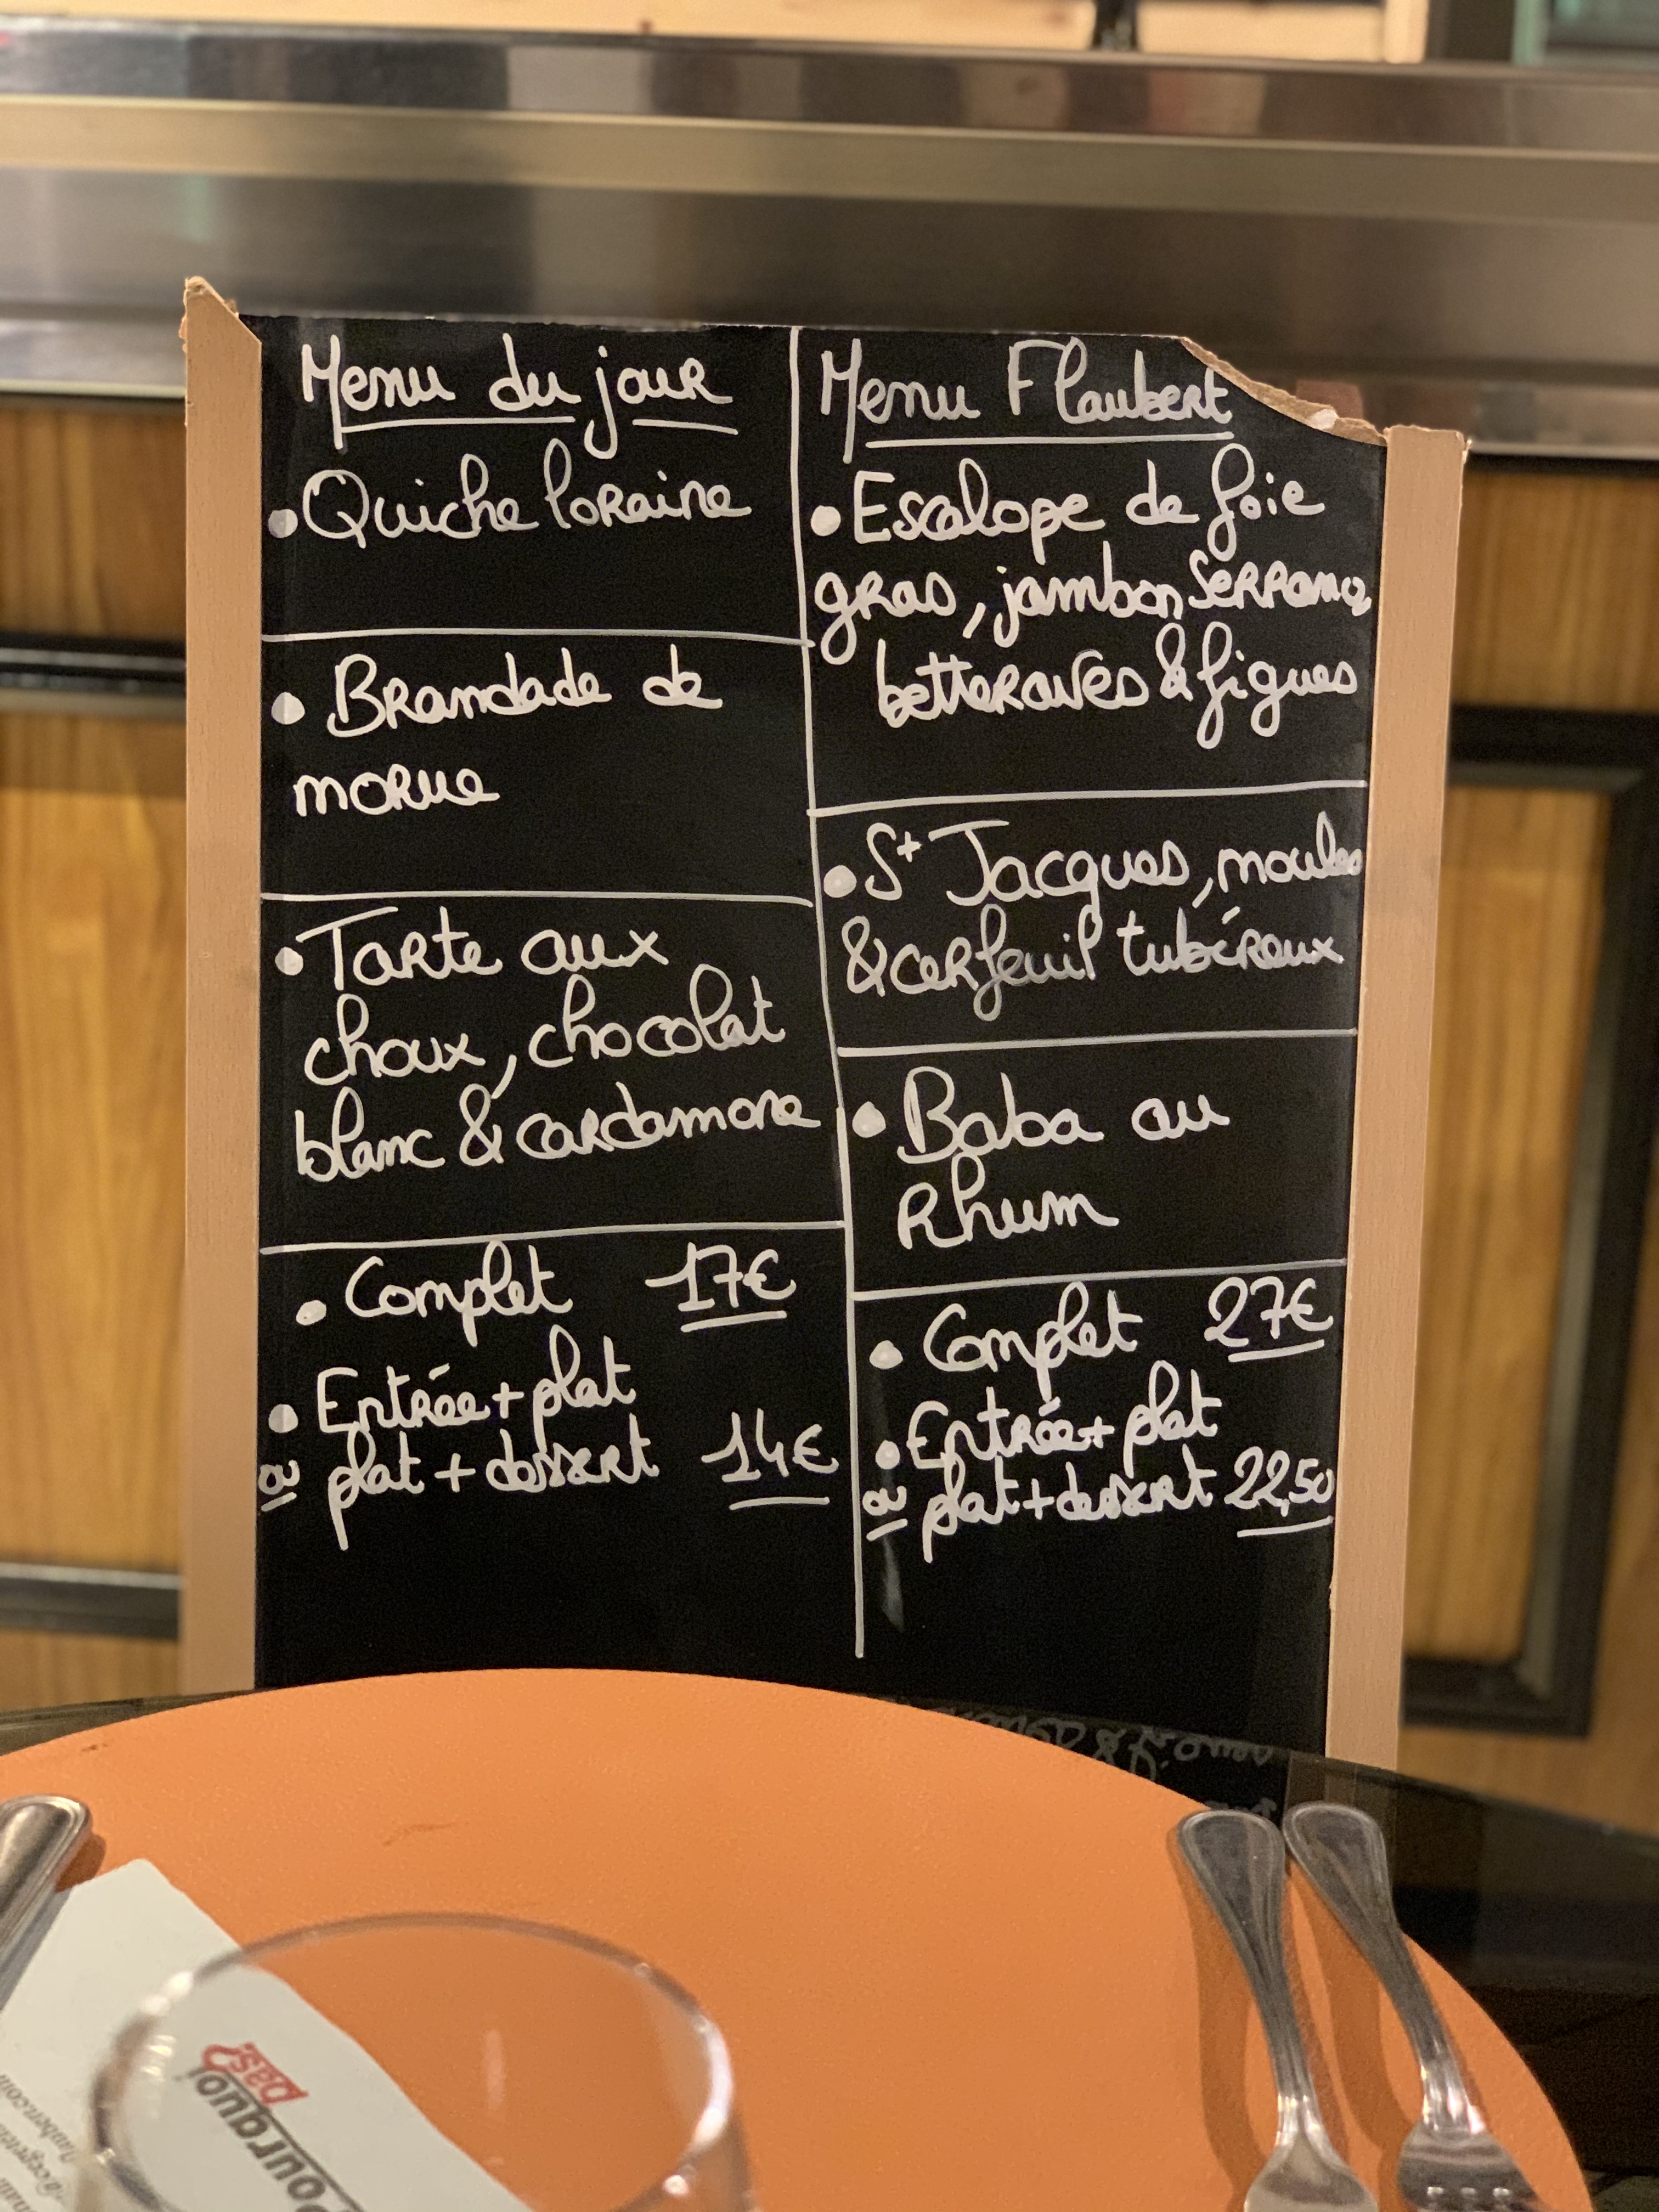 Menu du jour
• Quiche loraine
• Brandade de
morue
• Tarte aux
choux, chocolat
blanc & cardamone
• Complet 17€
• Entrée + plat
ou plat + dessert 14€
Menu Flaubert
• Escalope de foie
gras, jambon Serrano,
betteraves & figues
• St Jacques, moules
& cerfeuil tubéreux
• Baba au
Rhum
• Complet 27€
• Entrée + plat
ou plat + dessert 22,50
Pourquoi
pas?